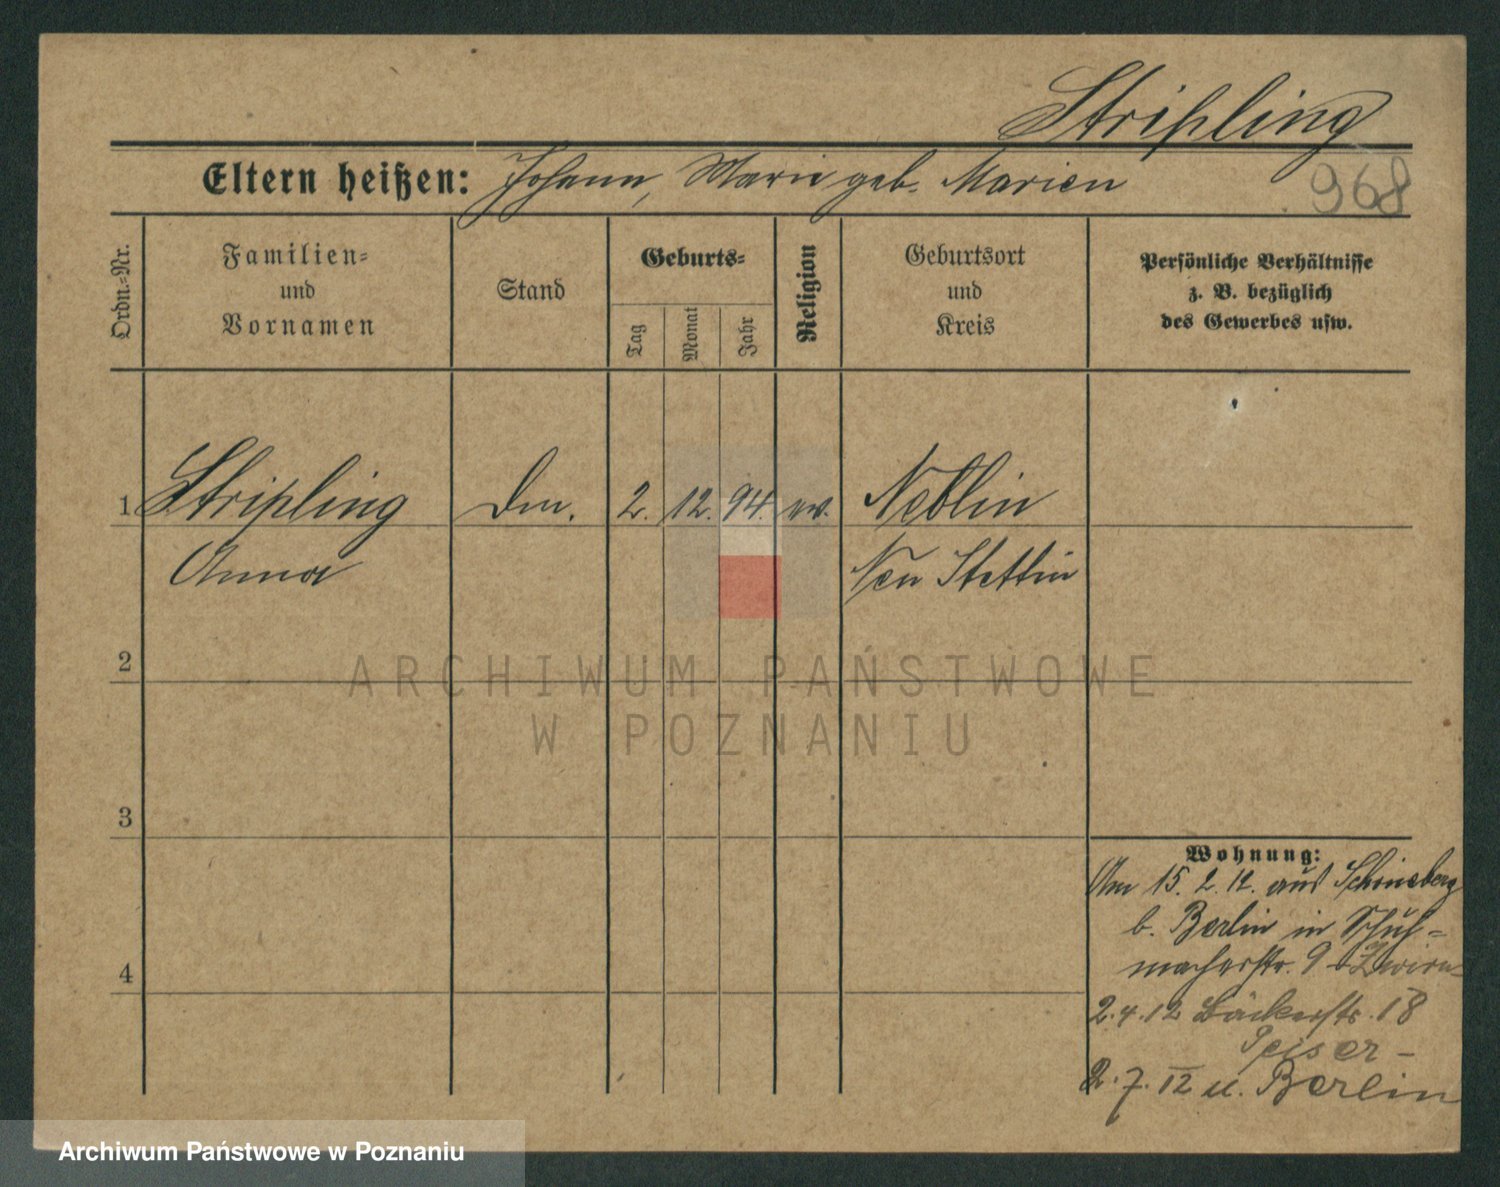 Stripling
Eltern heißen: Johann, Marie geb. Marien
968
Ordn.-Nr.
Familien-
und
Vornamen
Stand
Geburts-
Tag
Monat
Jahr
Religion
Geburtsort
und
Kreis
Persönliche Verhältnisse
z. B. bezüglich
des Gewerbes usw.
1 Stripling 2. 12. 94. ev. Neblin
Anna Neu Stettin
2
ARCHIWUM PAŃSTWOWE
W POZNANIU
3
Wohnung:
Am 15. 2. 12. aus Schöneberg
b. Berlin in Schuh-
macherstr. 9
4
2.4.12 Bäckerstr. 18
Peiser-
2.7.12 n. Berlin
Archiwum Państwowe w Poznaniu